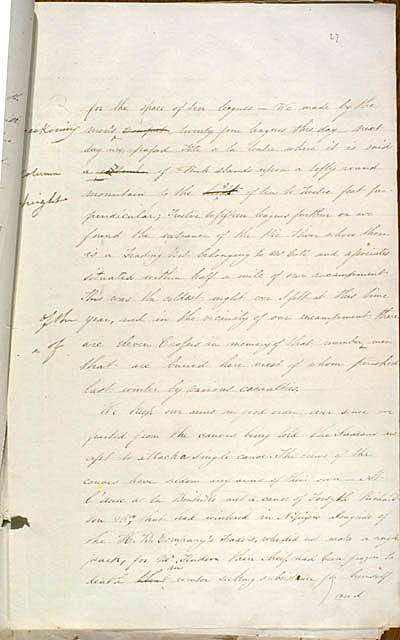 27
for the space of ten leagues — We made by the
reckoning men's twenty four leagues this day — next
day we passed Tete a la Loutre where it is said
column a of Rock stands upon a lofty round
height mountain to the of ten to twelve feet per-
pendicular; Twelve to fifteen leagues further on we
found the entrance of the Pic River where there
is a Trading Post belonging to Mr Coté and associates
situated within half a mile of our encampment
This was the coldest night ever I felt at this time
of the year, and in the vicinity of our encampment there
are eleven Crosses in memory of that number of men
that are buried here most of whom perished
last winter by various casualties.
We keep our arms in good order ever since we
parted from the canoes being told the Indians are
apt to attack a single canoe. The crews of the
canoes have seldom any arms of their own — At
L'Ance a la met a canoe of Forsyth Richard
son &Co; that had wintered in Nipigon alongside of
the H. B. Company's Traders, who did not make a single
pack, for Mr Hudson their chief had been frozen to
death in winter seeking subsistence for himself
and